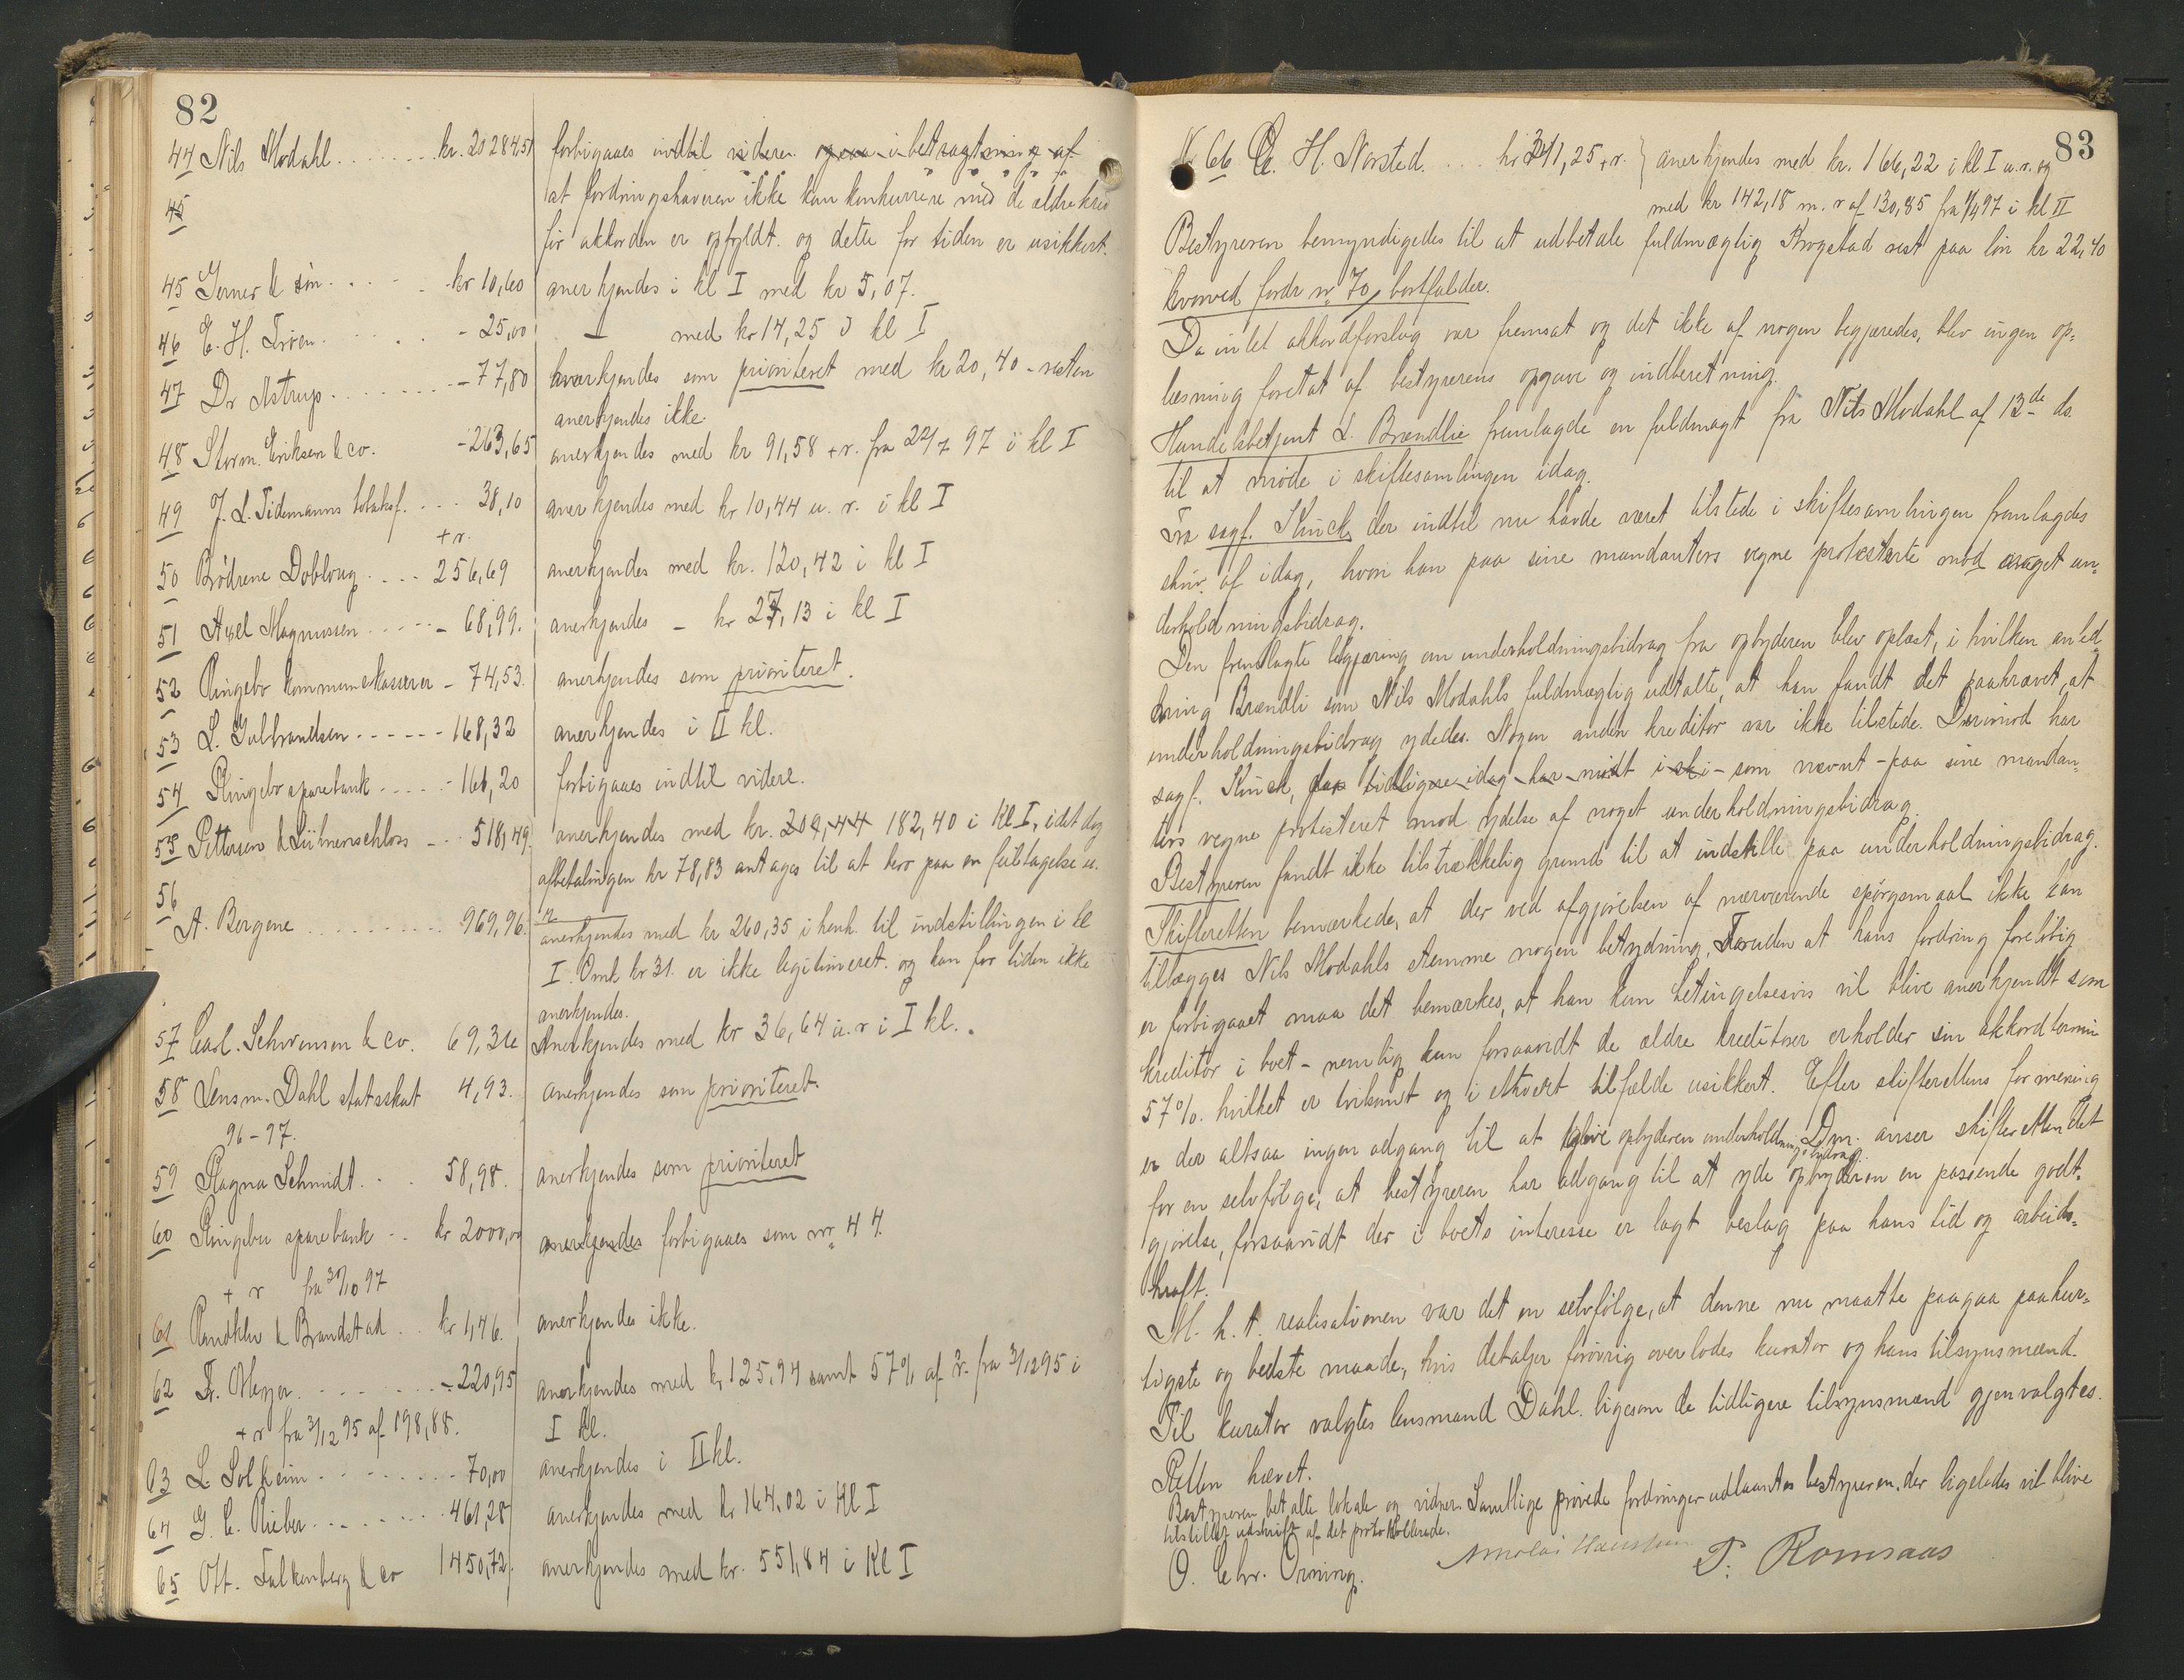 82
44 Nils Modahl ....... kr. 20284,51 forbigaaes indtil videre ogsaa i betragtning af
at fordringshaveren ikke kan konkurrere med de ældre kred
45
før akkorden er opfyldt. og dette for tiden er usikkert.
45 Gerner & søn . . . . . kr 10,60 anerkjendes i kl I med kr 5,07.
46 E. H. Trøen. . . . . - 25,00 — med kr 14,25 i kl I
47 Dr Astrup ........ - 77,80 anerkjendes som prioriteret med kr 20,40 - resten
anerkjendes ikke.
48 Storm. Eriksen & co. - 263,65 anerkjendes med kr 91,58 + r. fra 22/7 97 i kl I
49 J. L. Tidemanns tobaksf. ... 38,10 anerkjendes med kr 10,44 u. r. i kl I
+ r.
50 Brødrene Dobloug .... 256,69 anerkjendes med kr. 120,42 i kl I
51 Axel Magnussen ..... - 68,99. anerkjendes - kr 27,13 i kl I
52 Ringebo kommunekasserer - 74,53. anerkjendes som prioriteret.
53 L. Gulbrandsen ------ 168,32 anerkjendes i II kl.
54 Ringebo sparebank ..... - 166,20 forbigaaes indtil videre.
55 Pettersen & - 518,49. anerkjendes med kr. 208,44 182,40 i Kl I, idet dog
afbetalingen kr 78,83 antages til at bero paa en feiltagelse u.
r.
56
A. Bergene ......... 969,96. anerkjendes med kr 260,35 i henh. til indstillingen i kl
I. Omk. kr 31. er ikke legitimeret. og kan for tiden ikke
anerkjendes.
57 Carl. Schwensen & co. 69,36 Anerkjendes med kr 36,64 u. r i I kl.
58 Lensm. Dahl statsskat 4,93. anerkjendes som prioriteret.
96-97.
59 Ragna Schmidt. . . 58,98. anerkjendes som prioriteret
60 Ringebu sparebank .. kr 2000,00 anerkjendes forbigaaes som nr 44.
+ r fra 30/10 97
61 & Brandstad .. kr 1,46. anerkjendes ikke.
62 Fr. Meyer. ....... - 220,95 anerkjendes med kr 125,94 samt 57% af r. fra 3/12 95 i
+ r fra 3/12 95 af 198,88. I kl.
63 L. Solheim ........ - 70,00 anerkjendes i II kl.
64 G. C. Rieber ....... 461,28 anerkjendes med kr 164.02 i Kl I
65 Ott. Falkenberg & co 1450,72. anerkjendes med kr. 551,84 i Kl I
83
N 66 H. Norsted. ... kr 341,25 + r. } anerkjendes med kr. 166,22 i kl I u. r. og
med kr 142,18 m. r af 130,85 fra 1/4 97 i kl II
Bestyreren bemyndigedes til at udbetale fuldmægtig Krogstad rest paa løn kr 22,40
hvorved fordr nr 70 bortfalder.
Da intet akkordforslag var fremsat og det ikke af nogen begjæredes, blev ingen op-
læsning foretat af bestyrerens opgave og indberetning.
Handelsbetjent L. Brændlie fremlagde en fuldmagt fra Nils Modahl af 13de ds
til at møde i skiftesamlingen idag.
Fra sagf. Kinck, der indtil nu havde været tilstede i skiftesamlingen fremlagdes
skriv. af idag, hvori han paa sine mandanters vegne protesterte mod noget un-
derholdningsbidrag.
Den fremlagte begjæring om underholdningsbidrag fra opbyderen blev oplæst, i hvilken anled-
ning Brændli som Nils Modahls fuldmægtig udtalte, at han fandt det paakrævet, at
underholdningsbidrag ydedes. Nogen anden kreditor var ikke tilstede. Derimod har
sagf. Kinck, der tidligere idag har mødt i ski - som nævnt - paa sine mandan-
ters vegne protesteret mod ydelse af noget underholdningsbidrag.
Bestyreren fandt ikke tilstrækkelig grund til at indstille paa underholdningsbidrag.
Skifteretten bemærkede, at der ved afgjørelsen af nærværende spørgsmaal ikke kan
tillægges Nils Modahls stemme nogen betydning. Foruden at hans fordring foreløbig
er forbigaaet maa det bemærkes, at han kun betingelsesvis vil blive anerkjendt som
kreditor i boet - nemlig kun forsaavidt de ældre kreditorer erholder sin akkordtermin
57%. hvilket er tvilsomt og i ethvert tilfælde usikkert. Efter skifterettens formening
er der altsaa ingen adgang til at give opbyderen underholdningsbidrag. Dm. anser skifteretten det
for en selvfølge, at bestyreren har adgang til at yde opbyderen en passende godt-
gjørelse, forsaavidt der i boets interesse er lagt beslag paa hans tid og arbeids-
kraft.
M. h. t. realisationen var det en selvfølge, at denne nu maatte paagaa paa hur-
tigste og bedste maade, hvis detaljer forøvrig overlodes kurator og hans tilsynsmænd.
Til kurator valgtes lensmand Dahl. ligesom de tidligere tilsynsmænd gjenvalgtes.
Retten hævet.
Bestyreren betalte lokale og vidner. Samtlige prøvede fordringer udlaantes bestyreren, der ligeledes vil blive
tilstillet udskrift af det protokollerede.
O. Chr. Orning. P. Romsaas